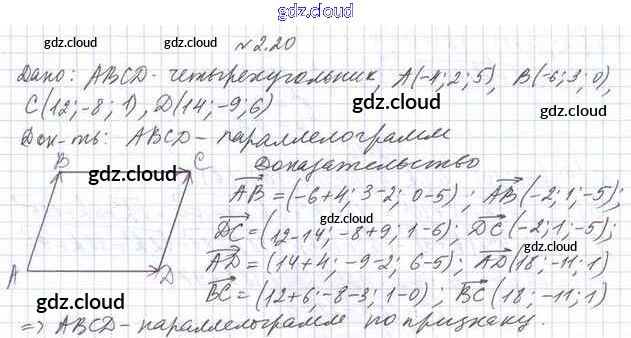 gdz.cloud
gdz.cloud gdz.cloud №2.20
Дано: ABCD - четырехугольник, A(-4; 2; 5), B(-6; 3; 0),
gdz.cloud
C(12; -8; 1), D(14; -9; 6) gdz.cloud
Док-ть: ABCD - параллелограмм
B C Доказательство
gdz.cloud
AB = (-6+4; 3-2; 0-5); AB(-2; 1; -5);
gdz.cloud
DC = (12-14; -8+9; 1-6); DC(-2; 1; -5);
AD = (14+4; -9-2; 6-5); AD(18; -11; 1)
A D gdz.cloud gdz.cloud
BC = (12+6; -8-3; 1-0); BC(18; -11; 1)
gdz.cloud
=> ABCD - параллелограмм по признаку.